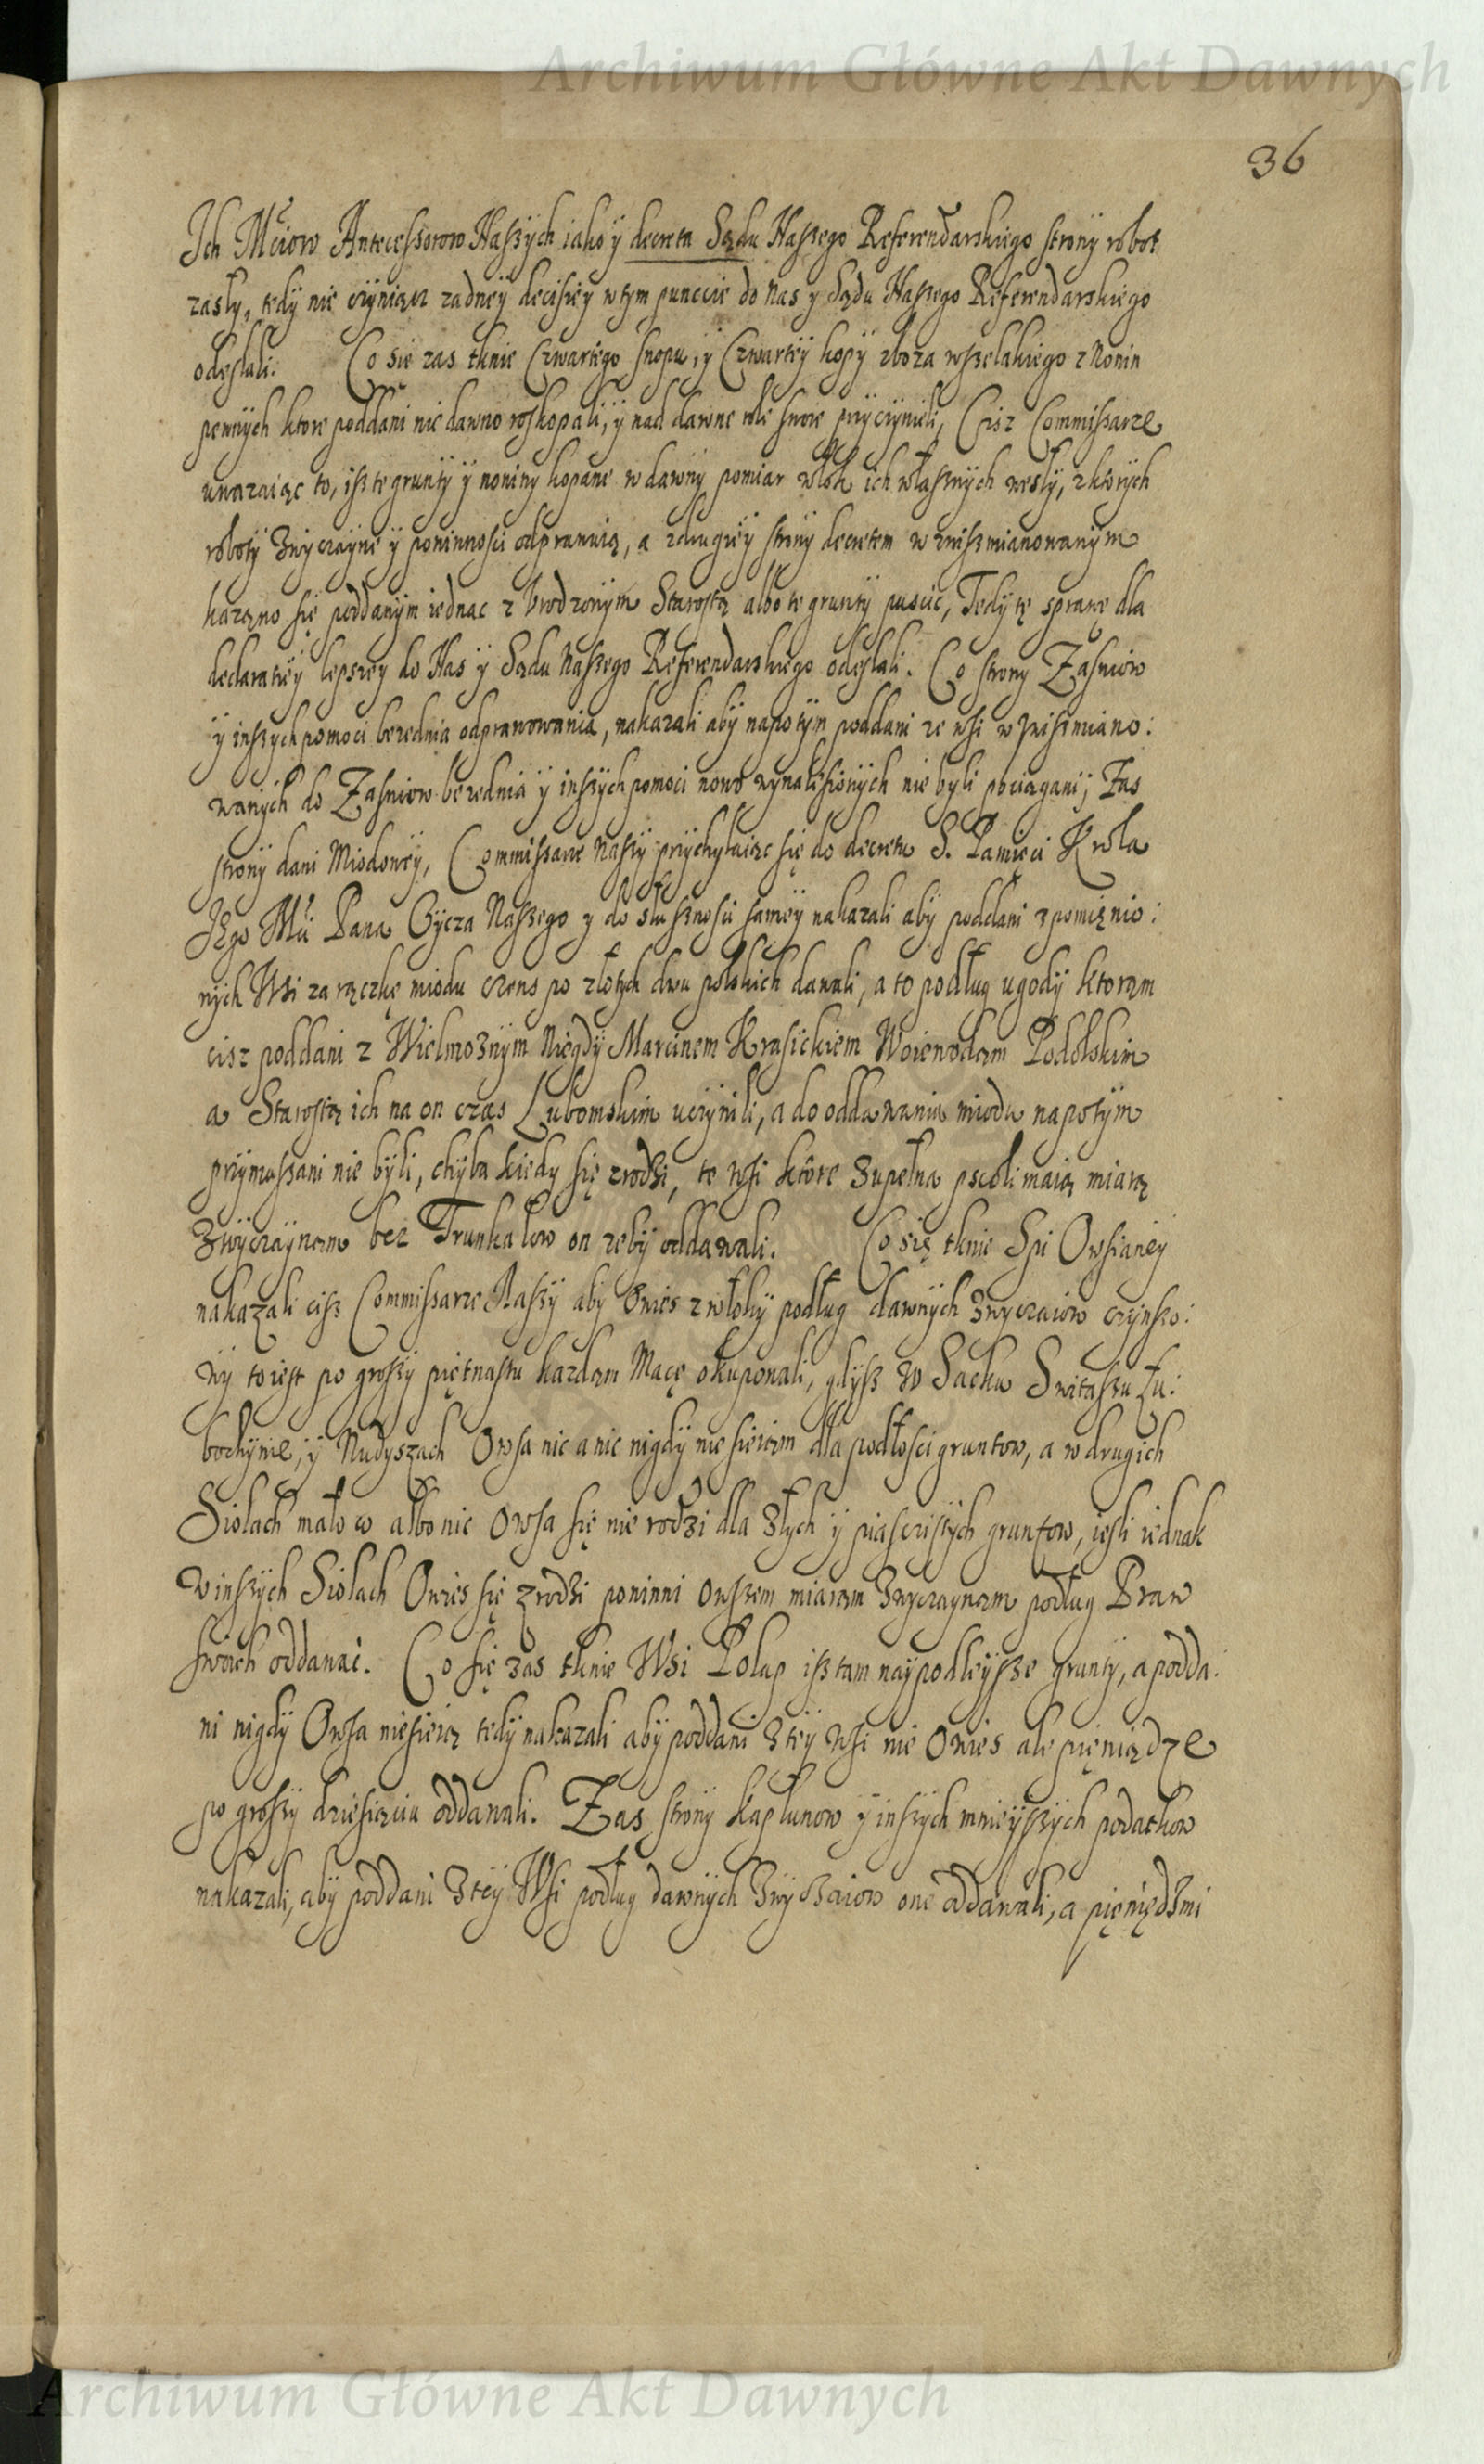 Archiwum Główne Akt Dawnych
36
Ich Mciow Antecessorow Naszych iako y decreta Sądu Naszego Referendarskiego strony robot
zasły, tedy nie czyniąc zadney decisiey w tym punccie do Nas y Sądu Naszego Referendarskiego
odesłali. Co sie zas tknie Czwartego Snopu, y Czwartey kopy zboza wszelakiego z Nowin
pewnych ktore poddani nie dawno roskopali, y nad dawne role swoie przyczynili, Cisz Commissarze
uwazaiąc to, isz te grunty y nowiny kopane w dawny pomiar włok ich własznych weszły, z ktorych
roboty zwyczayne y powinnosci odprawuią, a z drugiey strony decretem w zwisz mianowanym
kazano się poddanym iednac z Urodzonym Starostą albo te grunty puscic, Tedy tę sprawę dla
declaratiey lepszey do Nas y Sądu Naszego Referendarskiego odesłali. Co strony Zasniow
y inszych pomoci berednia odprawowania, nakazali aby napotym poddani ze wsi w zwisz miano:
wanych do Zasniow berednia y inszych pomoci nowo wynalezionych nie byli pociągani, Zas
strony dani Miodowey, Commissarze Naszy przychylaiąc się do decretu S. Pamięci Krola
Jego Mci Pana Oycza Naszego y do słusznosci samey nakazali aby poddani wspomięnio:
nych Wsi za rączkę miodu czens po złotych dwu polskich dawali, a to podług ugody ktorąm
cisz poddani z Wielmoznym Niegdy Marcinem Krasickiem Woiewodąm Podolskim
a Starostą ich na on czas Lubomskim uczynili, a do oddawania miodu napotym
przymuszani nie byli, chyba kiedy się zrodzi, te wsi ktore zupełna pscoli maią miarą
zwyczaynąm bez Trunkałow on zeby oddawali. Co się tknie Spi Owsianey
nakazali cisz Commissarze Naszy aby Owies z włoky podług dawnych zwyczaiow czynszo:
wy to iest po groszy piętnastu kazdąm Macę okupowali, gdysz w Sacku Switaszu Lu:
bochynie, y Nudyszach Owsa nic a nic nigdy nie sieiąm dla podłosci gruntow, a w drugich
Siolach mało co albo nic Owsa się nie rodzi dla złych y piasczistych gruntow, iesli iednak
w inszych Siolach Owies się zrodzi powinni Owszem miarąm zwyczaynąm podług Praw
swoich oddawać. Co się zas tknie Wsi Polap isz tam naypodleysze grunty, a podda:
ni nigdy Owsa niesieią tedy nakazali aby poddani z tey wsi nie Owies ale pieniądze
po groszy dziesięciu oddawali. Zas strony kapłunow y inszych mnieyszych podatkow
nakazali, aby poddani z tey Wsi podług dawnych zwyczaiow one oddawali, a pięniędzmi
Archiwum Główne Akt Dawnych